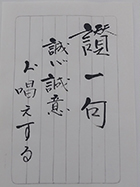 證一句
誠心誠意
ド唱えする